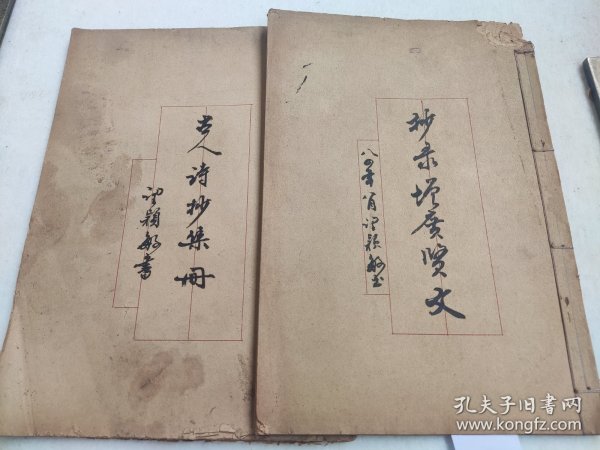 抄录增广贤文
八四年八月谭颖敏书
古人诗抄集册
谭颖敏书
孔夫子旧书网